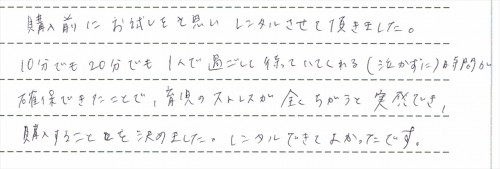 購入前にお試しをと思いレンタルさせて頂きました。
10分でも20分でも1人で過ごして待っていてくれる(泣かずに)時間が
確保できたことで、育児のストレスが全くちがうと実感でき、
購入することを決めました。レンタルできてよかったです。